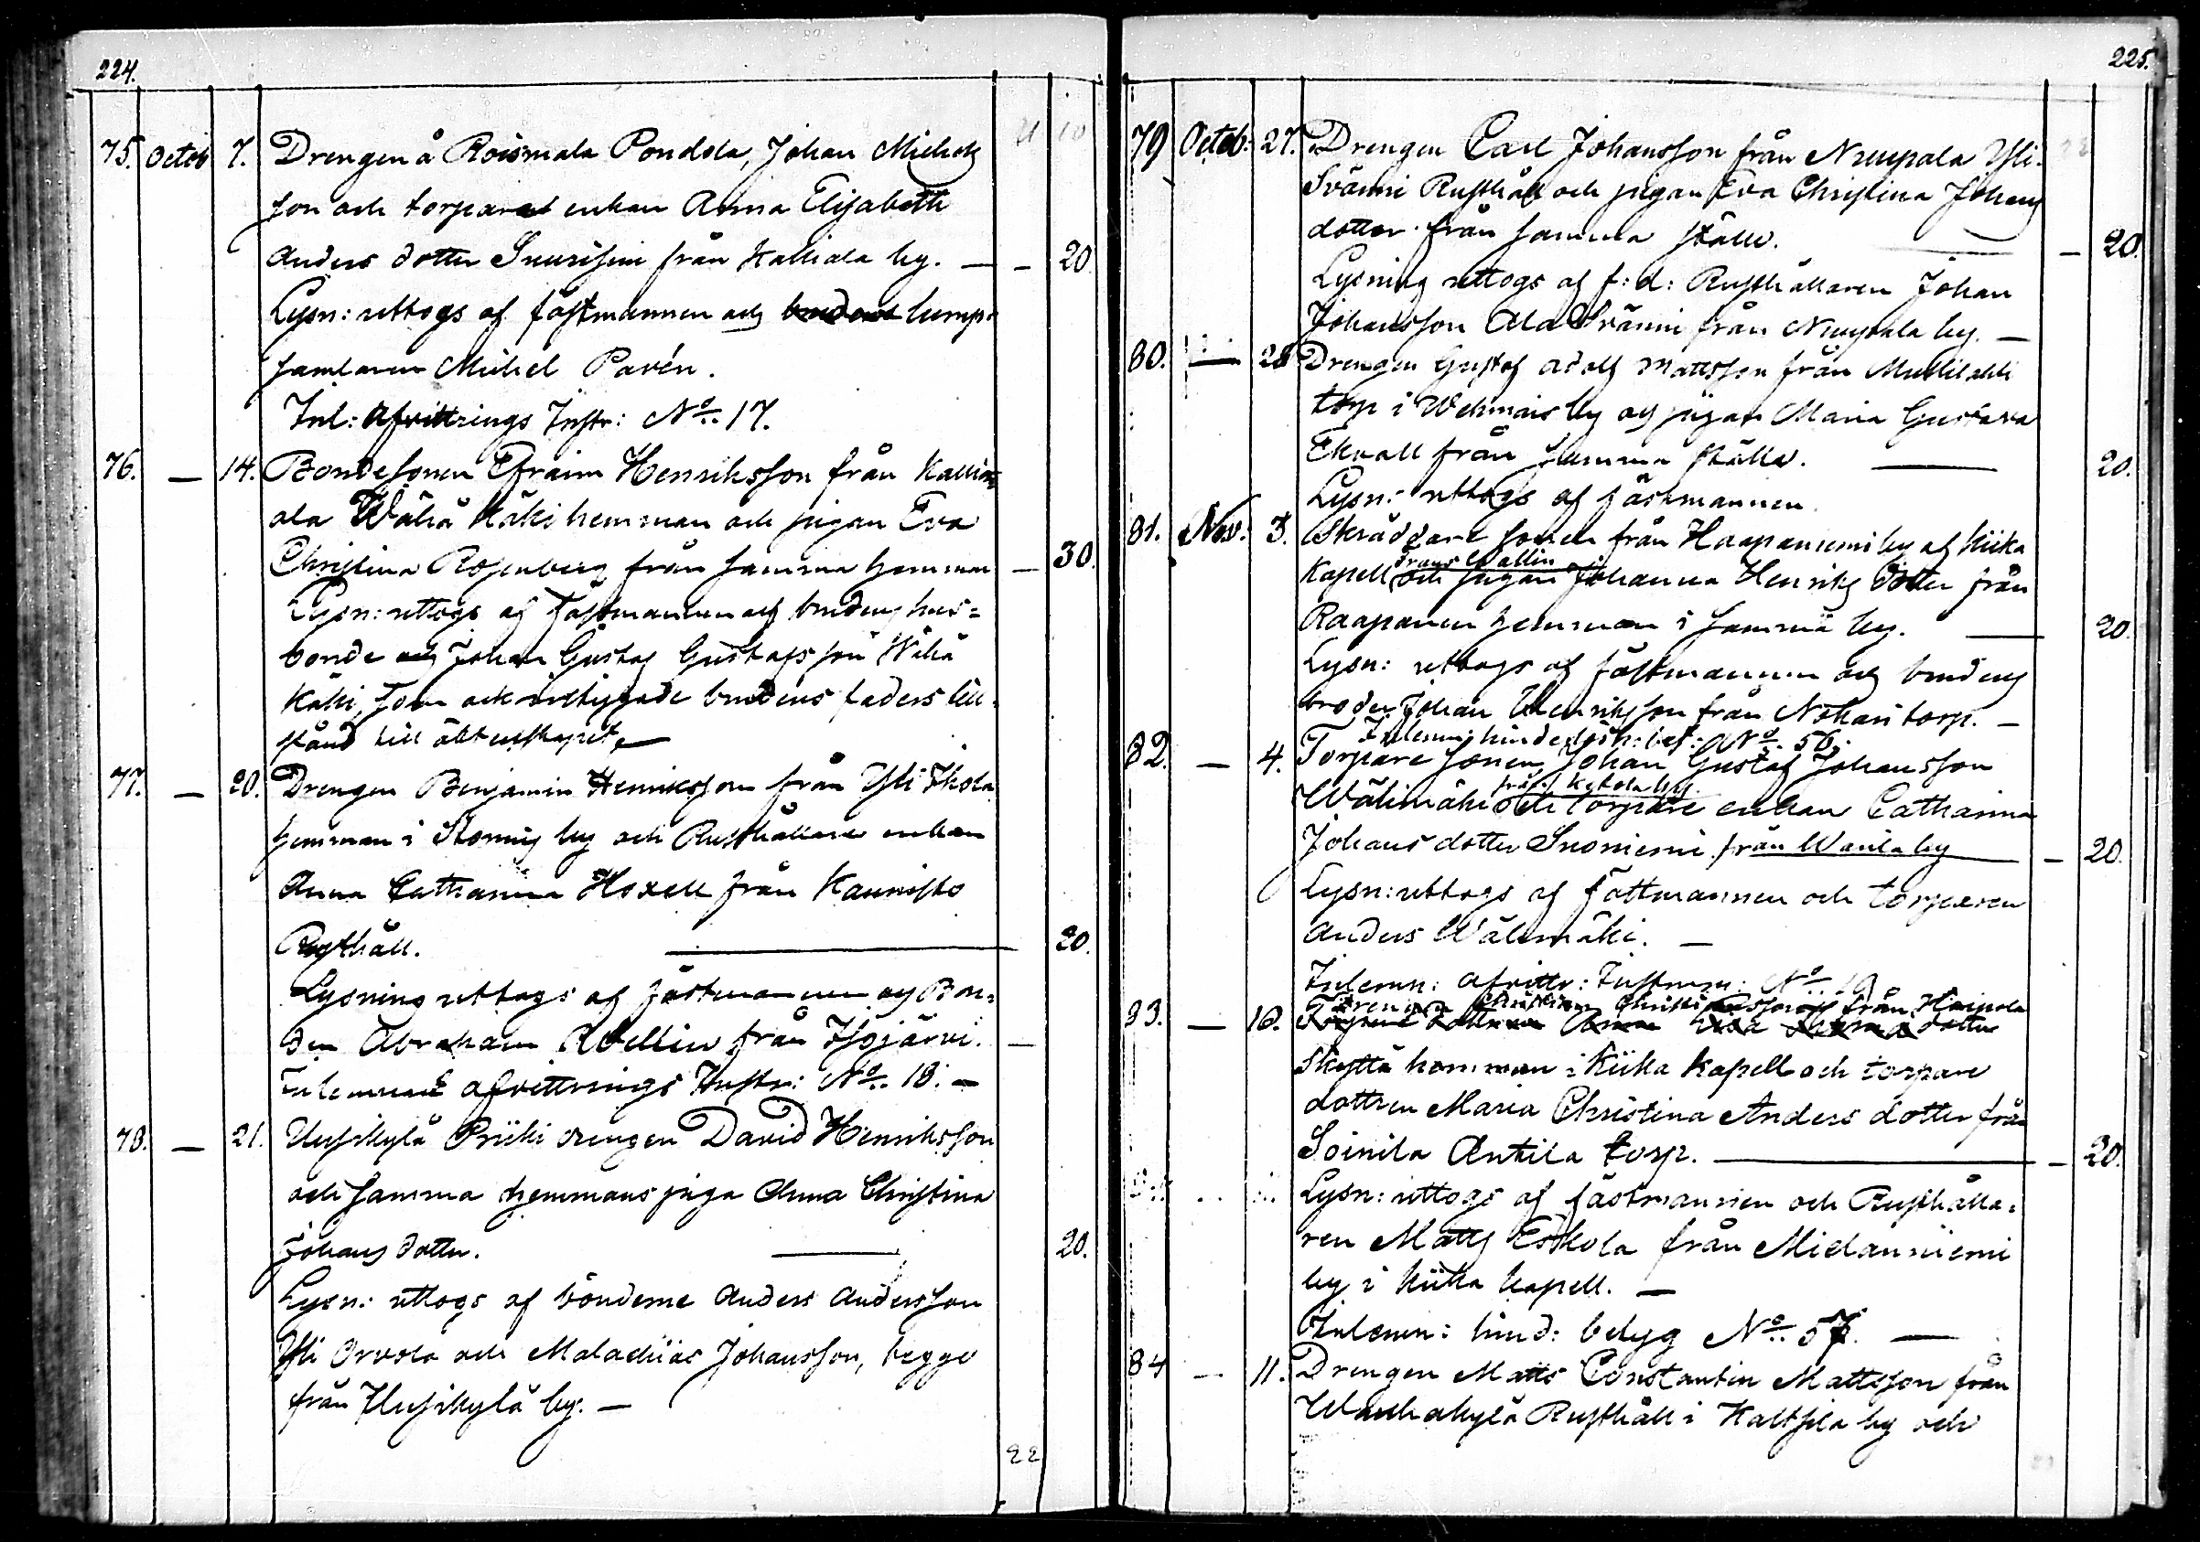 224.
21 10
75. Octob 7. Drengen å Roismala Pondola, Johan Michels
son och torpare enkan Anna Elisabeth
Anders dotter Suurisuu från Kalliala by. — – 20.
Lysn: uttogs af fästmannen och lump-
samlaren Michel Pavén.
Inl: Afvittrings Instr: No. 17.
76. — 14. Bondesonen Efraim Henriksson från Kalli-
ala Wähä Käki hemman och pigan Eva
Christina Rosenberg från samma hemman — 30.
Lysn: uttogs af fästmannen och brudens hus=
bonde Johan Gustaf Gustafsson Wähä
Käki, som ock intygade brudens faders till
stånd till äktenskapet. —
77. — 20. Drengen Benjamin Henriksson från Yli
hemman i Stormis by och Rusthållare enkan
Anna Catharina Hoxell från Kaunisto
Rusthåll. — 20.
Lysning uttogs af fästmannen och Bon=
den Abraham Wellin från Isojärvi. —
Inlemnat afvittrings Instr: No. 18. —
78. — 21. Uusikylä Priiki drengen David Henriksson
och samma hemmans piga Anna Christina
Johans dotter. — 20.
Lysn: uttogs af bönderne Anders Andersson
Yli Orvola och Malachias Johansson, begge
från Uusikylä by. —
22
225.
79 Octob: 27. Drengen Carl Johansson från Nuupala Yli-
Svänni Rusthåll och pigan Eva Christina Johans
dotter från samma ställe. — – 20.
Lysning uttogs af f: d: Rusthållaren Johan
Johansson Ala Svänni från Nuupala by. —
80. — 28 Drengen Gustaf Adolf Mattsson från
torp i Wehmais by och pigan Maria Gustava
Ekvall från samma ställe. — 20.
Lysn: uttogs af fästmannen.
81. Nov: 3. Skräddare sonen från Haapaniemi by af Kiika
Frans Wallin
Kapell och pigan Johanna Henriks dotter från
Raapanen hemman i samma by. — 20.
Lysn: uttogs af fästmannen och brudens
broder Johan Henriksson från Nohari torp. —
Inlemn: hinderslösh: bef: No. 56.
82. — 4. Torpare sonen Johan Gustaf Johansson
från Kokola by
Wälimäki och torpare enkan Catharina
Johans dotter Suoniemi från Warila by — 20.
Lysn: uttogs af fästmannen och torparen
Anders Wälimäki. —
Inlemn: afvittr: Instrum: No. 19
Drengen Christian Christiansson från Haipola
83. — 10.
Skyttä hemman i Kiika Kapell och torpare
dottren Maria Christina Anders dotter från
Soinila Antila torp. — – 20.
Lysn: uttogs af fästmannen och Rusthålla=
ren Matts Eskola från Mielanniemi
by i Kiika Kapell. —
Inlemn: hind: betyg No. 57. —
84 — 11. Drengen Matts Constantin Mattsson från
Wanhakylä Rusthåll i Kaltsila by och